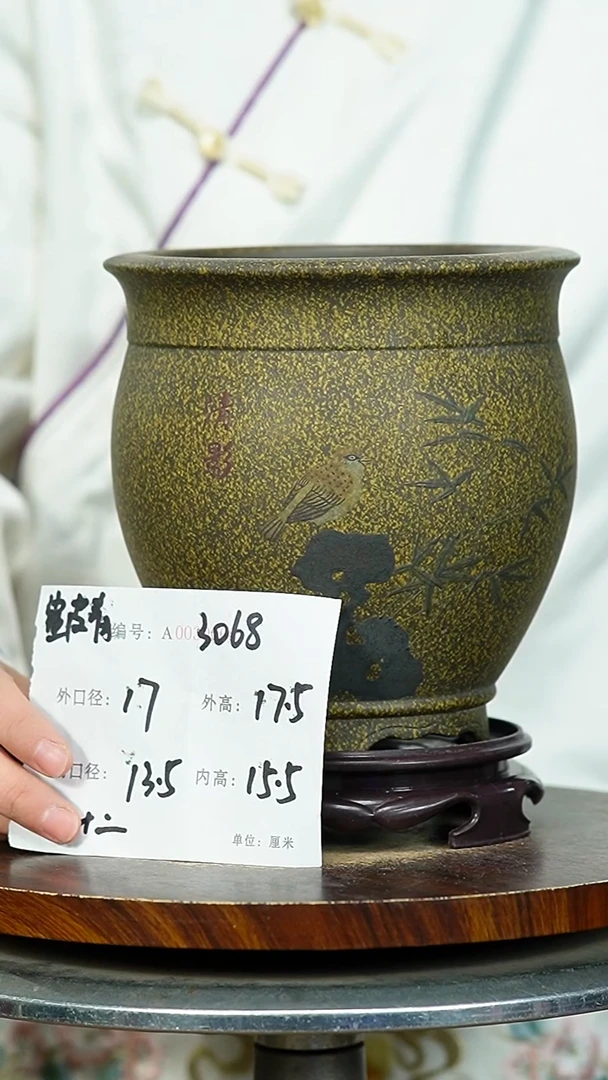 清影
蛤皮青 编号: A003068
外口径: 17 外高: 17.5
口径: 13.5 内高: 15.5
十二
单位: 厘米